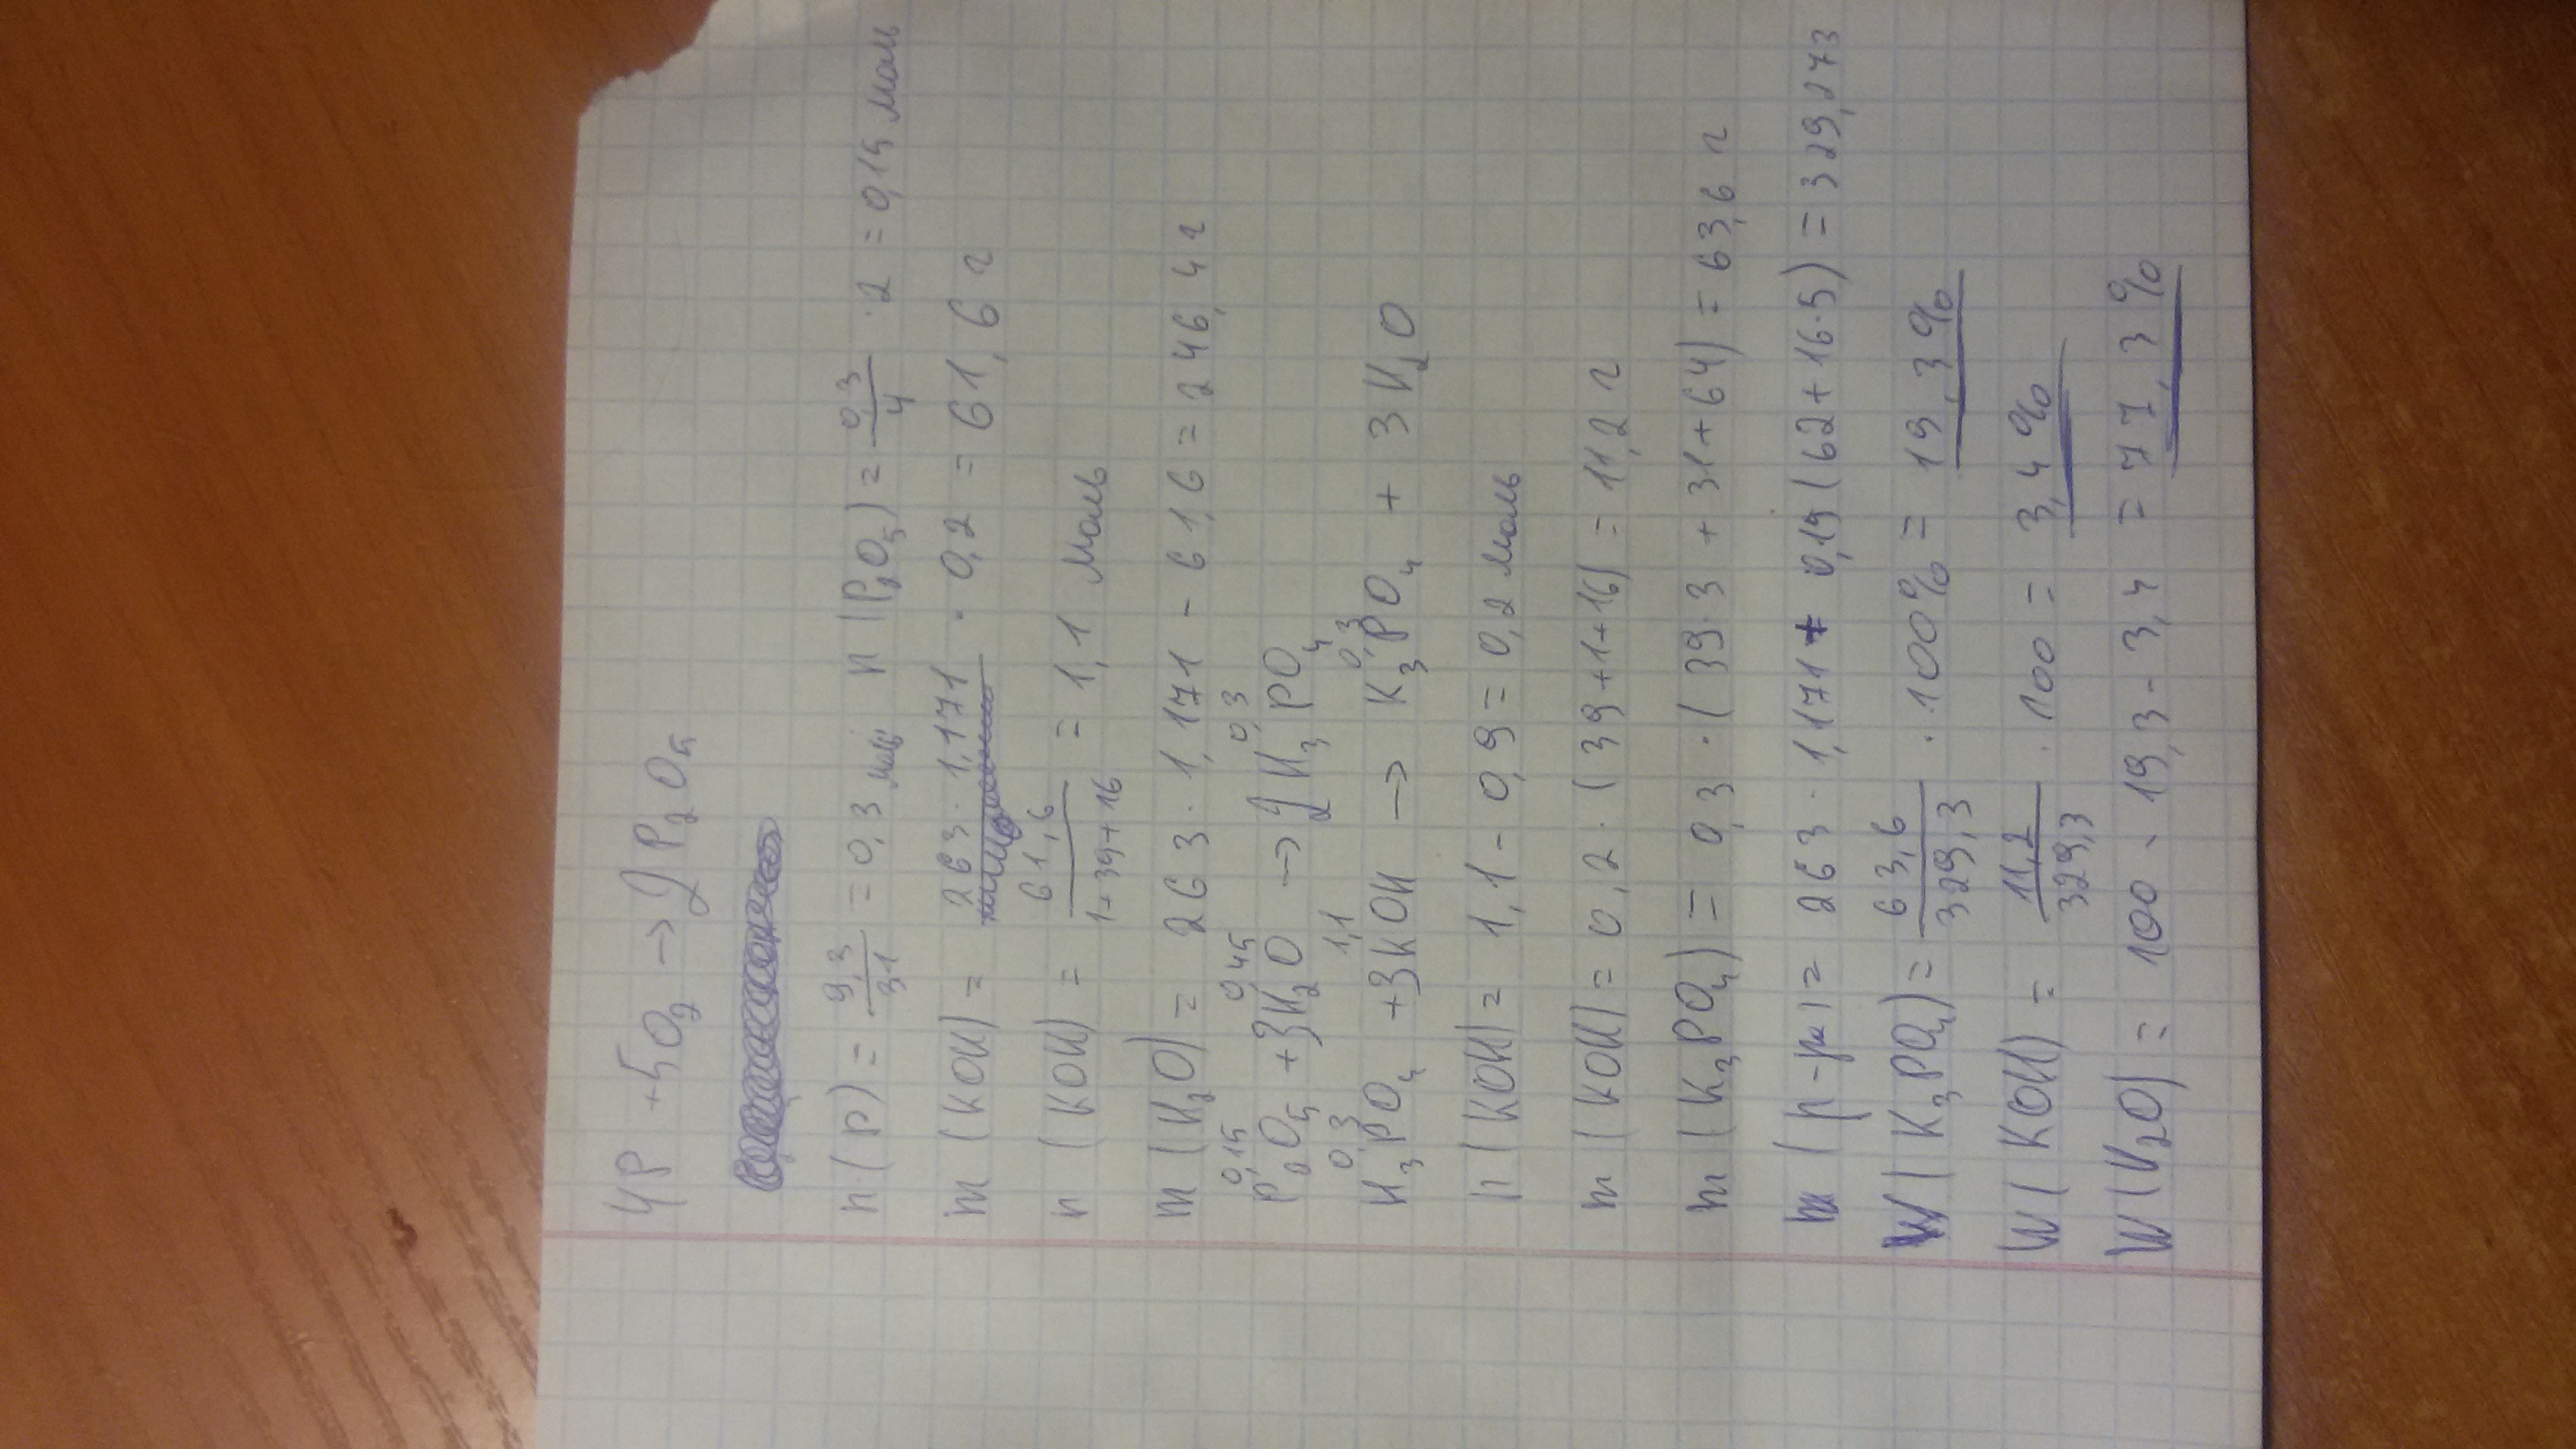 4P + 5O₂ → 2P₂O₅
n(P) = 9,3/31 = 0,3 моль n(P₂O₅) = 0,3/4 · 2 = 0,15 моль
m(KOH) = 263 · 1,171 · 0,2 = 61,6 г
n(KOH) = 61,6/1+39+16 = 1,1 моль
m(H₂O) = 263 · 1,171 - 61,6 = 246,4 г
0,15 0,45 0,3
P₂O₅ + 3H₂O → 2H₃PO₄
0,3 1,1 0,3
H₃PO₄ + 3KOH → K₃PO₄ + 3H₂O
n(KOH) = 1,1 - 0,9 = 0,2 моль
m(KOH) = 0,2 · (39+1+16) = 11,2 г
m(K₃PO₄) = 0,3 · (39·3 + 31 + 64) = 63,6 г
m(р-ра) = 263 · 1,171 + 0,15(62+16·5) = 329,273
W(K₃PO₄) = 63,6/329,3 · 100% = 19,3%
W(KOH) = 11,2/329,3 · 100 = 3,4%
W(H₂O) = 100 - 19,3 - 3,4 = 77,3%